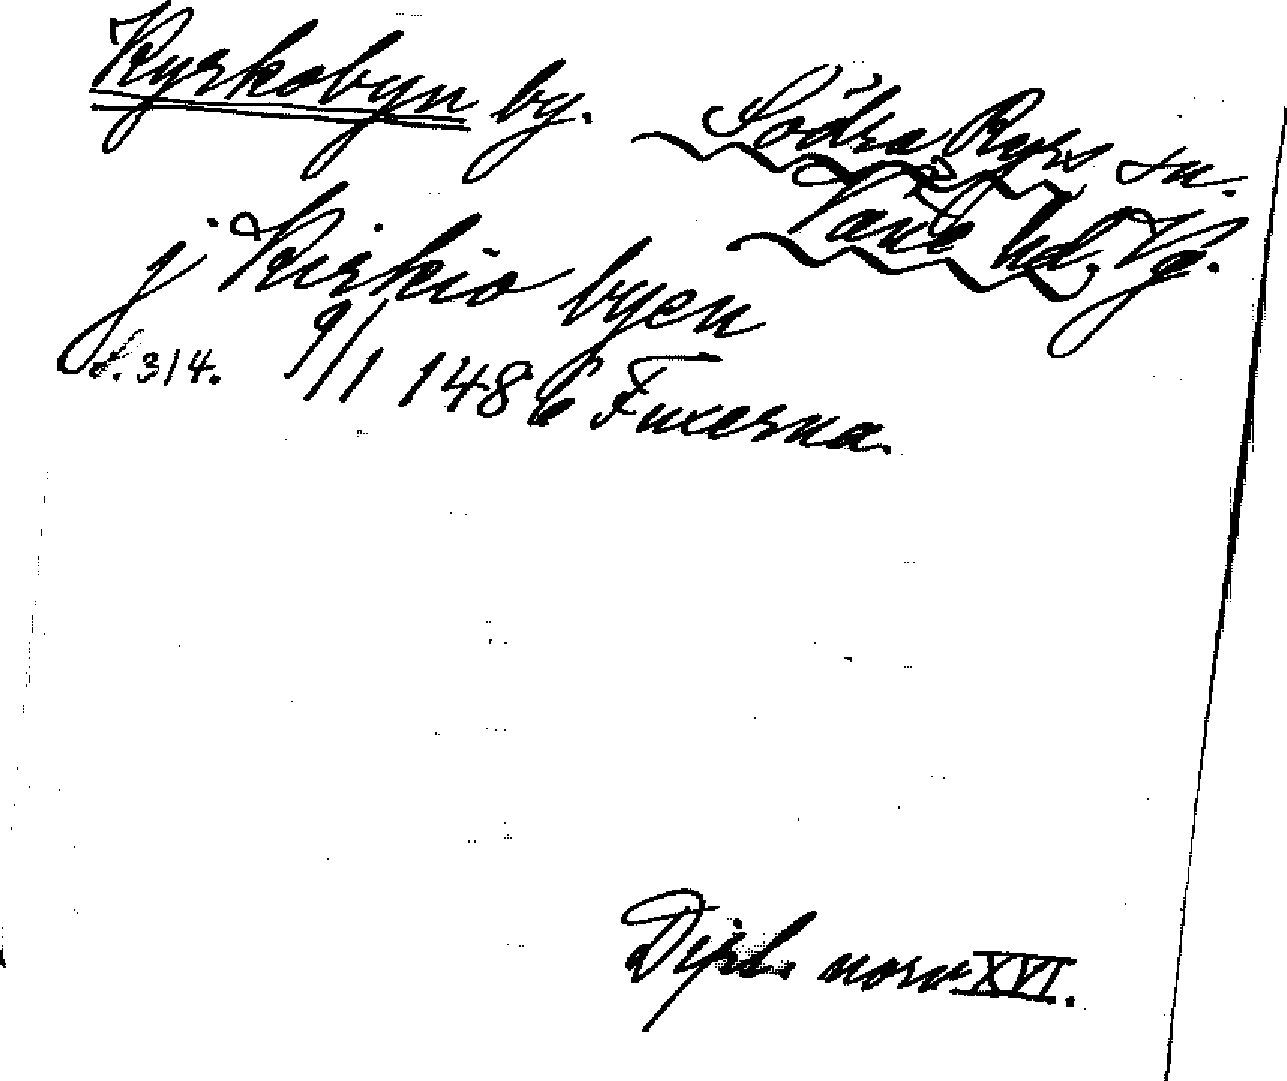 Kyrkobyn by.
Södra Ryrs sn.
Väne hd, Vg.
j Kirkio byen
S. 314. 9/1 1486 Fuxerna.
Dipl. norv XVI.